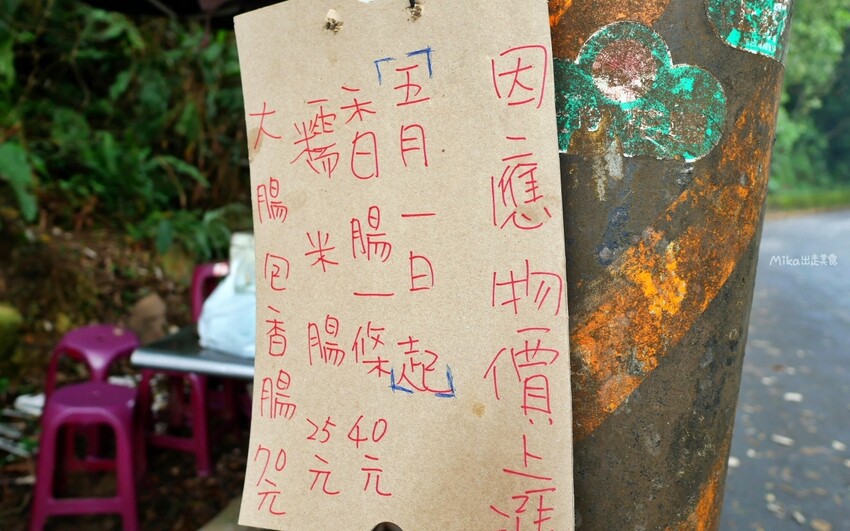 因應物價上漲
「五月一日起」
香腸一條40元
糯米腸25元
大腸包香腸70元
Mika出走美食